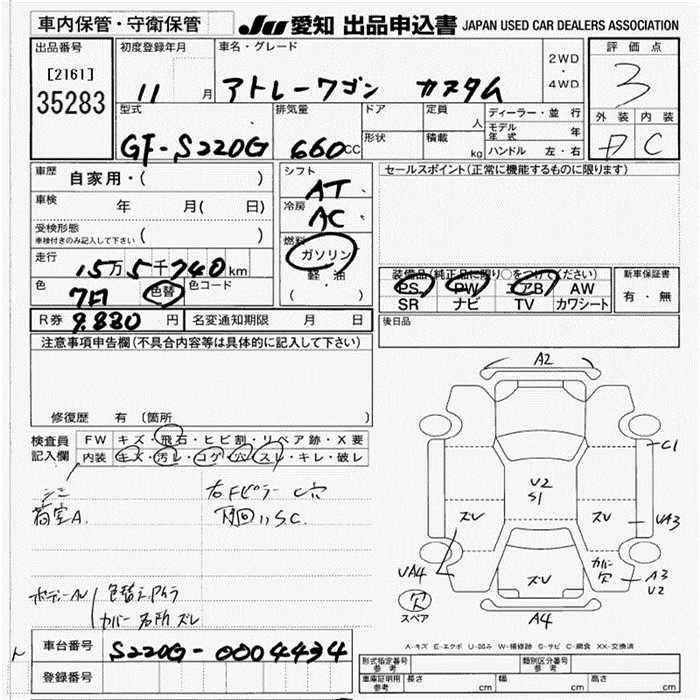 車内保管・守衛保管
JU 愛知 出品申込書 JAPAN USED CAR DEALERS ASSOCIATION
出品番号
[2161]
35283
初度登録年月
11 月
車名・グレード
アトレーワゴン カスタム
2WD
・
4WD
評価点
3
外装 内装
D C
型式
GF-S220G
排気量
660cc
ドア
形状
定員 人
積載 kg
ディーラー・並行
モデル年式 年
ハンドル 左・右
車歴
自家用・( )
車検
年 月( 日)
受検形態
車検付きのみ記入して下さい ( )
走行
15万5千740km
色
色替
色コード
シフト
AT
冷房
AC
燃料
ガソリン
軽・油
( ・ )
セールスポイント(正常に機能するものに限ります)
装備品(純正品に限り○をつけてください)
PS PW エアB AW
SR ナビ TV カワシート
新車保証書
有・無
R券 9.830 円
名変通知期限 月 日
後日品
注意事項申告欄(不具合内容等は具体的に記入して下さい)
修復歴 有(箇所 )
検査員記入欄
FW キズ・飛石・ヒビ割・リペア跡・X要
内装 キズ・汚レ・コゲ・穴・スレ・キレ・破レ
シミ
荷室A.
右Fピラー C穴
下回りSC.
色替え
カバー 右所 ズレ
A2
C1
U2
S1
ズレ
ズレ
UA3
UA4
ズレ
カバー
欠
A3
U2
欠
スペア
A4
A-キズ E-エクボ U-凹み W-補修跡 S-サビ C-腐食 XX-交換済
車台番号 S220G-0004494
登録番号
形式指定番号 参考
類別区分番号 参考
車庫証明用 参考 長さ cm 幅 cm 高さ cm